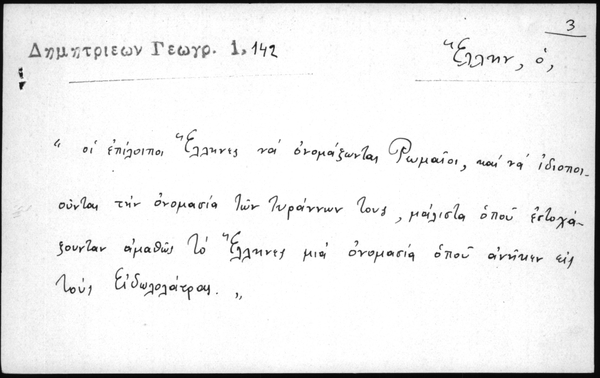 3
Δημητριεων Γεωγρ. 1, 142
Ἕλλην, ὁ,
“ οἱ ἐπίλοιποι Ἕλληνες νά ὀνομάζωνται Ρωμαῖοι, καί νά ἰδιοποι-
οῦνται τήν ὀνομασία τῶν τυράννων τους, μάλιστα ὁποῦ ἐστοχά-
ζουνταν ἀμαθῶς τό Ἕλληνες μιά ὀνομασία ὁποῦ ἀνῆκεν εἰς
τούς Εἰδωλολάτρας. „